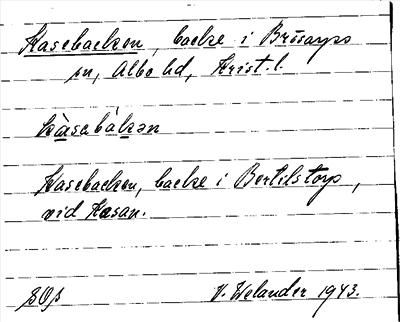 Kasebacken, backe i Brösarps
sn, Albo hd, Krist. l.
kàsabàkən
Kasebacken, backe i Bertilstorp,
vid Kasan.
V. Welander 1943.